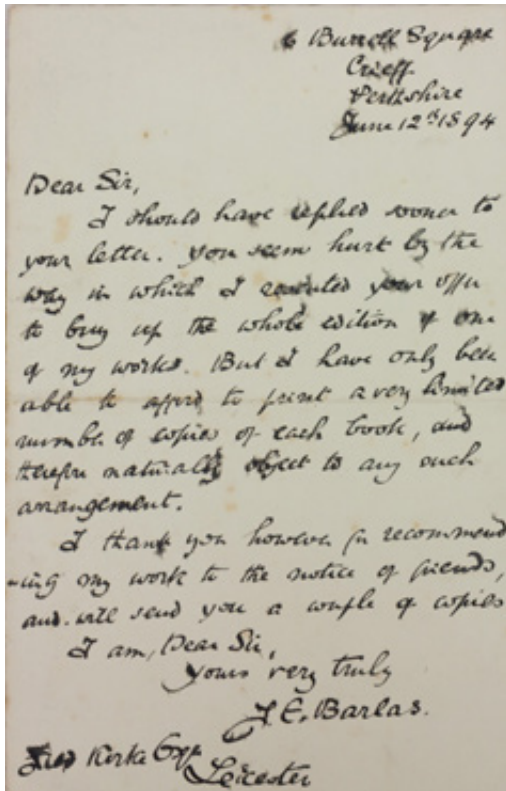 6 Burrell Square
Crieff
Perthshire
June 12th 1894
Dear Sir,
I should have replied sooner to
your letter. You seem hurt by the
way in which I your offer
to buy up the whole edition of one
of my works. But I have only been
able to afford to print a very limited
number of copies of each book, and
therefore naturally object to any such
arrangement.
I thank you however for recommend
-ing my work to the notice of friends,
and will send you a couple of copies
I am, Dear Sir,
Yours very truly
J. E. Barlas.
Kirke Esqr
Leicester